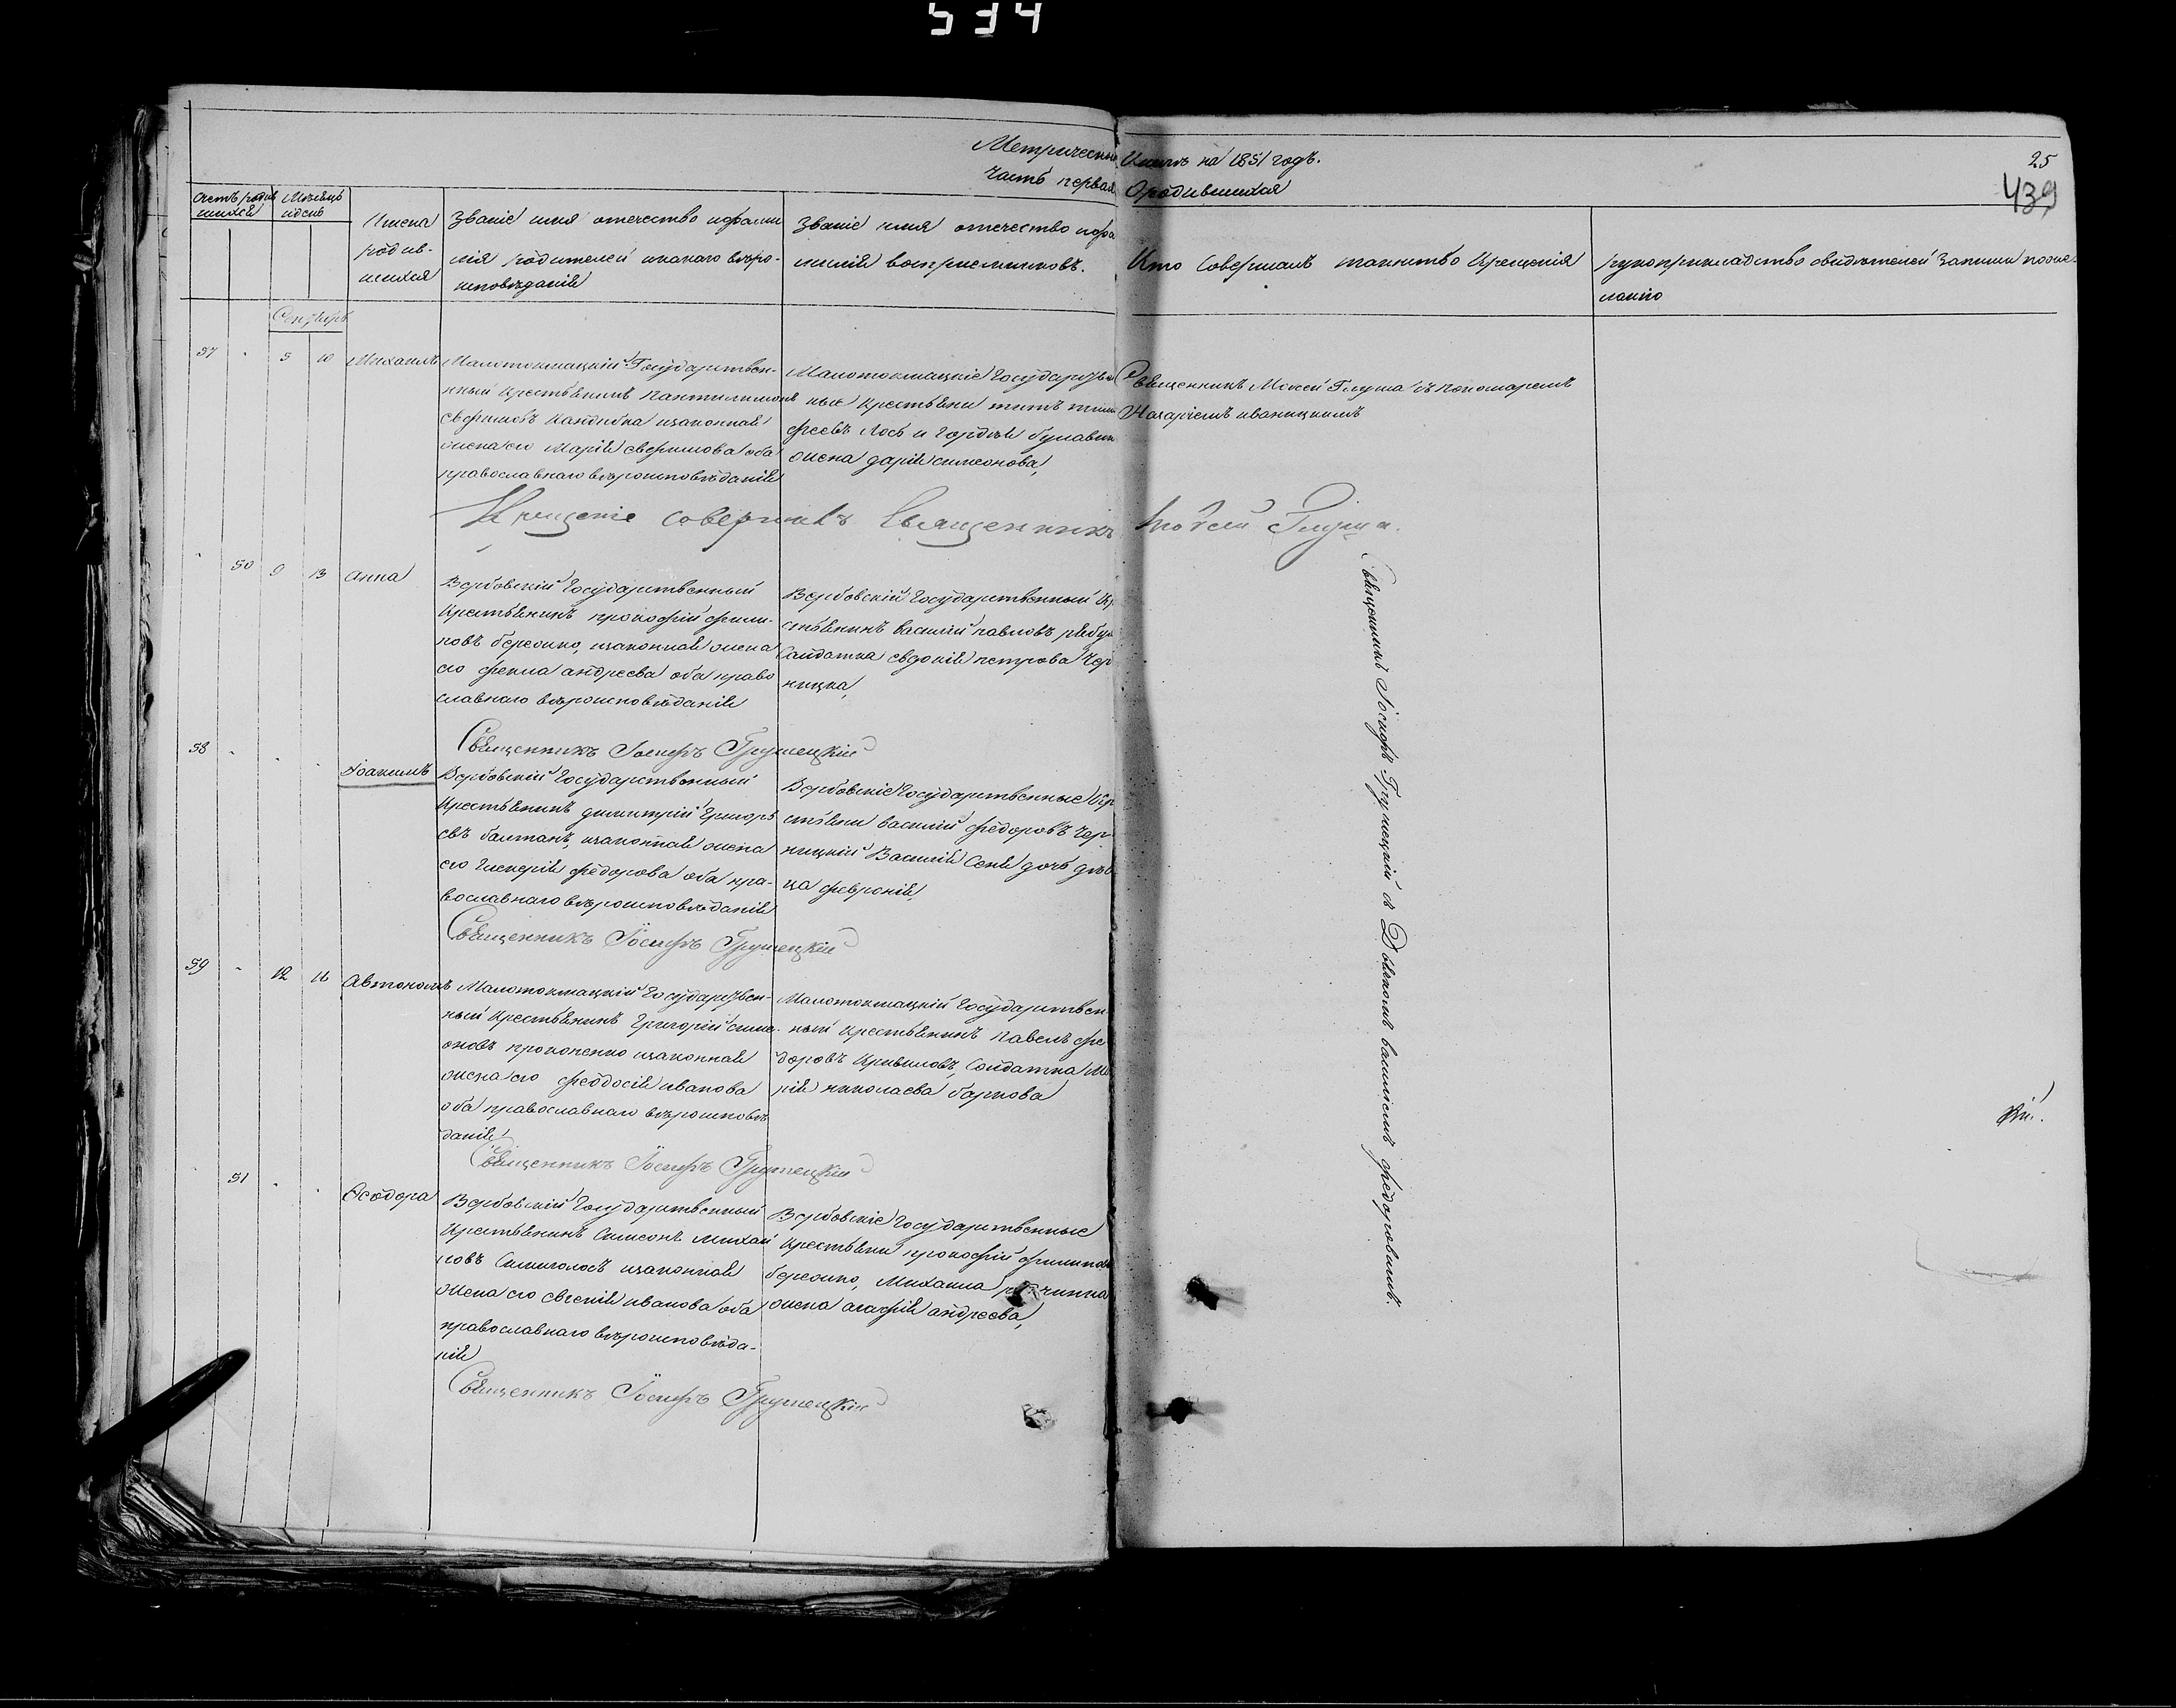 534
Метрической Книги на 1851 годъ.
25
439
Часть первая О родившихся
Счетъ родив-
шихся
Мѣсяцъ
и день
Имена
родив-
шихся
Званіе имя отечество и фами
лія родителей и какаго вѣро-
исповѣданія
Званіе имя отечество и фа
милія воспріемниковъ.
Кто Совершалъ таинство Крещенія
рукоприкладство свидѣтелей записи по же-
ланію
Сентябрь
57 5 10 Михаилъ
Малотокмацкій Государствен-
ный Крестьянинъ Пантилимонъ
Евфимовъ Кандибка изаконная
жена его Марія евфимова оба
православнаго вѣроисповѣданія
Малотокмацкіе Государстве
ные Крестьяни титъ тимо
феевъ Лось и Гордѣя булавин
жена дарія симеонова,
Священникъ Моисей Глуша съ пономаремъ
Назаріемъ иваницкимъ
Крещеніе совершалъ Священникъ Моѵсей Глуша.
50 9 13 Анна
Вербовскій Государственный
Крестьянинъ прокофій фили-
повъ бережно, изаконная жена
его фекла андреева оба право
славнаго вѣроисповѣданія
Вербовскій Государственный Кр
стьянинъ василій павловъ рябу
Салдатка евдокія петрова Чер
ницка,
Священникъ Іосифъ Грушецкій
58
Іоакимъ
Вербовскій Государственный
Крестьянинъ димитрій Григорь
евъ балтанъ, изаконная жена
его Гликерія федорова оба пра-
вославнаго вѣроисповѣданія
Вербовскіе Государственные Кр
стьяни василій федоровъ Чер-
ницкій Василія Сеня дочь дѣв
ца февронія,
Священникъ Іосифъ Грушецкій
59 12 16 Автономъ
Малотокмацкій Государствен-
ный Крестьянинъ Григорій симе-
оновъ прокопенко изаконная
жена его феодосія иванова
оба православнаго вѣроисповѣ
данія
Малотокмацкій Государствен
ный Крестьянинъ павелъ фе
доровъ Кривиловъ, Солдатка Ма
рія николаева баркова
Священникъ Іосифъ Грушецкій
51
Феодора
Вербовскій Государственный
Крестьянинъ Симеонъ михай
ловъ Симиголосъ изаконная
жена его евгенія иванова оба
православнаго вѣроисповѣда-
нія
Вербовскіе Государственные
Крестьяни прокофій филипов
бережно, Михаила
жена агафія андреева,
Священникъ Іосифъ Грушецкій
Священникъ Іосифъ Грушецкій съ Дьякомъ василіемъ федоровымъ.